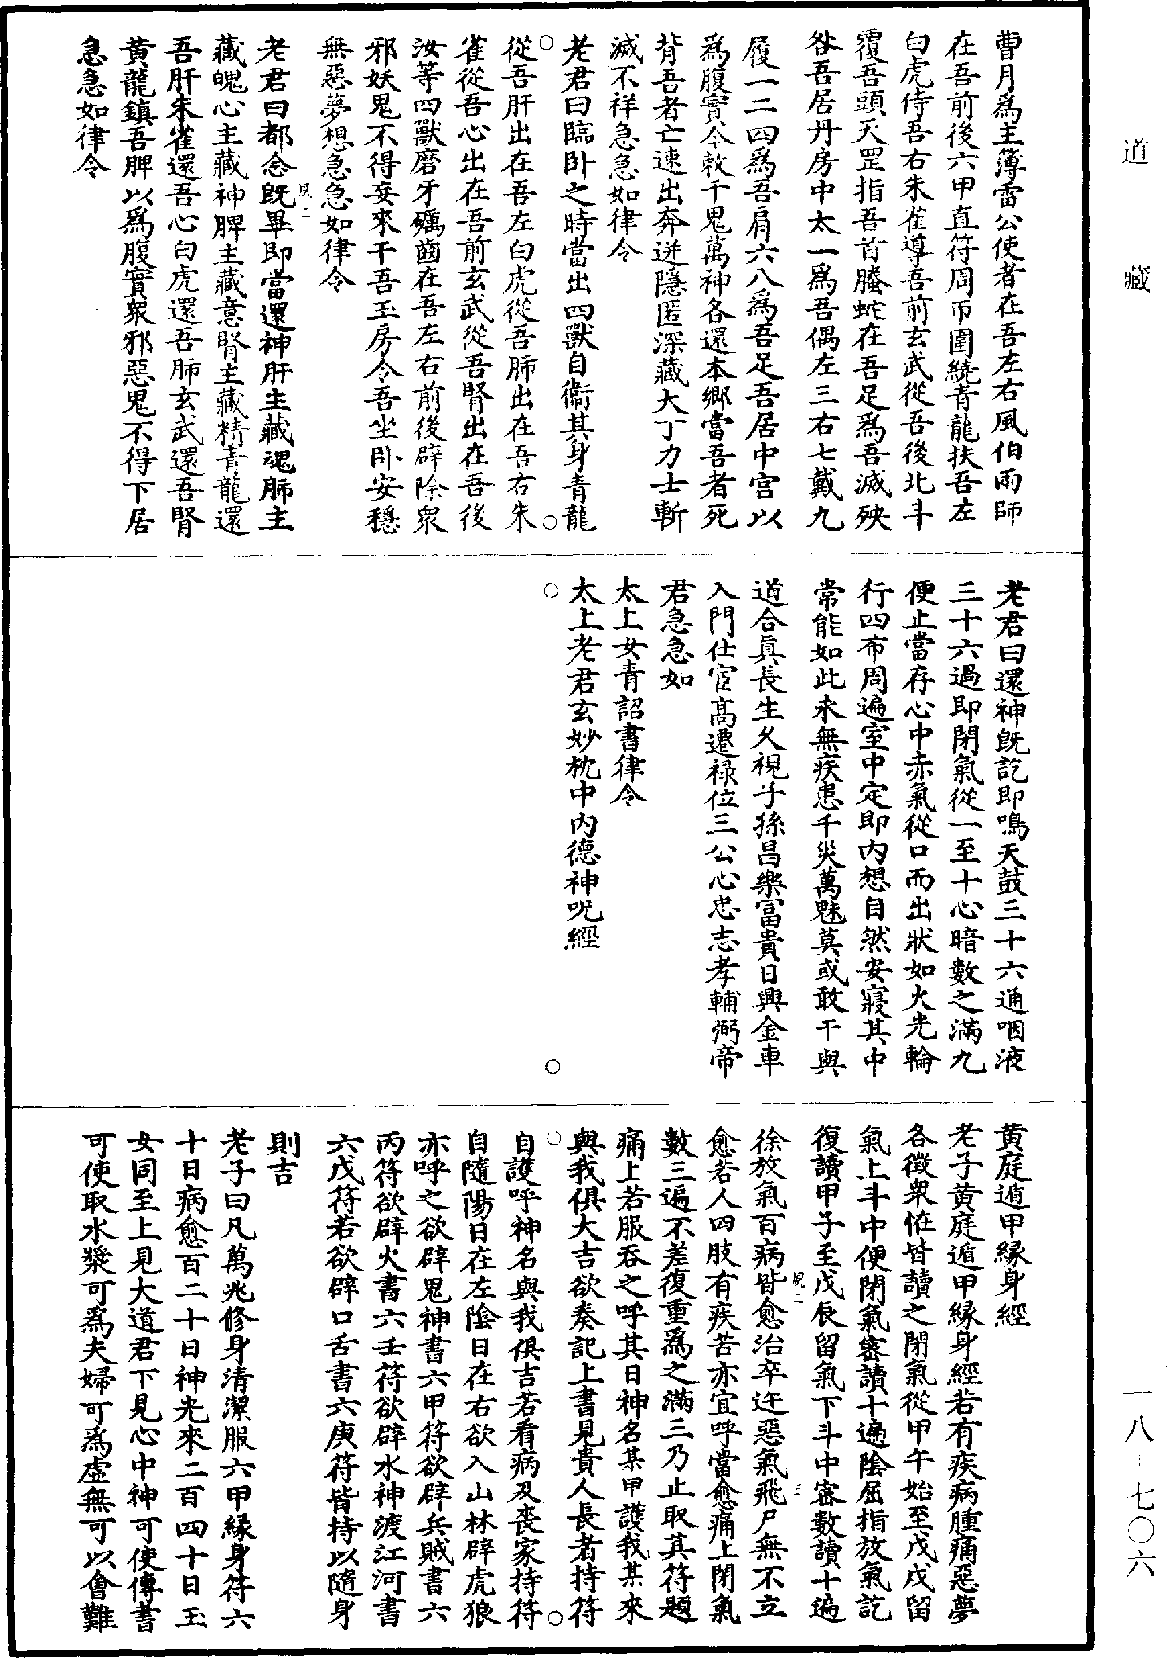 道藏
一八-七〇六
曹月爲主簿雷公使者在吾左右風伯雨師
在吾前後六甲直符周帀圍繞青龍扶吾左
白虎侍吾右朱雀導吾前玄武從吾後北斗
覆吾頭天罡指吾首螣蛇在吾足爲吾滅殃
咎吾居丹房中太一爲吾偶左三右七戴九
履一二四爲吾肩六八爲吾足吾居中宮以
爲腹實今敕千鬼萬神各還本鄉當吾者死
背吾者亡速出奔迸隱匿深藏大丁力士斬
滅不祥急急如律令
老君曰臨卧之時當出四獸自衞其身青龍
從吾肝出在吾左白虎從吾肺出在吾右朱
雀從吾心出在吾前玄武從吾腎出在吾後
汝等四獸磨牙礪齒在吾左右前後辟除衆
邪妖鬼不得妄來干吾玉房令吾坐卧安穩
無惡夢想急急如律令
老君曰都念既畢即當還神肝主藏魂肺主
藏魄心主藏神脾主藏意腎主藏精青龍還
吾肝朱雀還吾心白虎還吾肺玄武還吾腎
黄龍鎮吾脾以爲腹實衆邪惡鬼不得下居
急急如律令
老君曰還神既訖即鳴天鼓三十六通咽液
三十六過即閉氣從一至十心暗數之滿九
便止當存心中赤氣從口而出狀如火光輪
行四布周遍室中定即内想自然安寢其中
常能如此永無疾患千災萬魅莫或敢干與
道合眞長生久視子孫昌樂富貴日興金車
入門仕宦高遷禄位三公心忠志孝輔弼帝
君急急如
太上女青詔書律令
太上老君玄妙枕中内德神呪經
黄庭遁甲縁身經
老子黄庭遁甲縁身經若有疾病腫痛惡夢
各徵衆恠皆讀之閉氣從甲午始至戊戌留
氣上斗中便閉氣密讀十遍陰屈指放氣訖
復讀甲子至戊辰留氣下斗中密數讀十遍
徐放氣百病皆愈治卒迕惡氣飛尸無不立
愈若人四肢有疾苦亦宜呼當愈痛上閉氣
數三遍不差復重爲之滿三乃止取其符題
痛上若服吞之呼其日神名某甲護我某來
與我俱大吉欲奏記上書見貴人長者持符
自護呼神名與我俱吉若看病及喪家持符
自隨陽日在左陰日在右欲入山林辟虎狼
亦呼之欲辟鬼神書六甲符欲辟兵賊書六
丙符欲辟火書六壬符欲辟水神渡江河書
六戊符若欲辟口舌書六庚符皆持以隨身
則吉
老子曰凡萬兆修身清潔服六甲縁身符六
十日病愈百二十日神光來二百四十日玉
女同至上見大道君下見心中神可使傳書
可使取水漿可爲夫婦可爲虚無可以會難